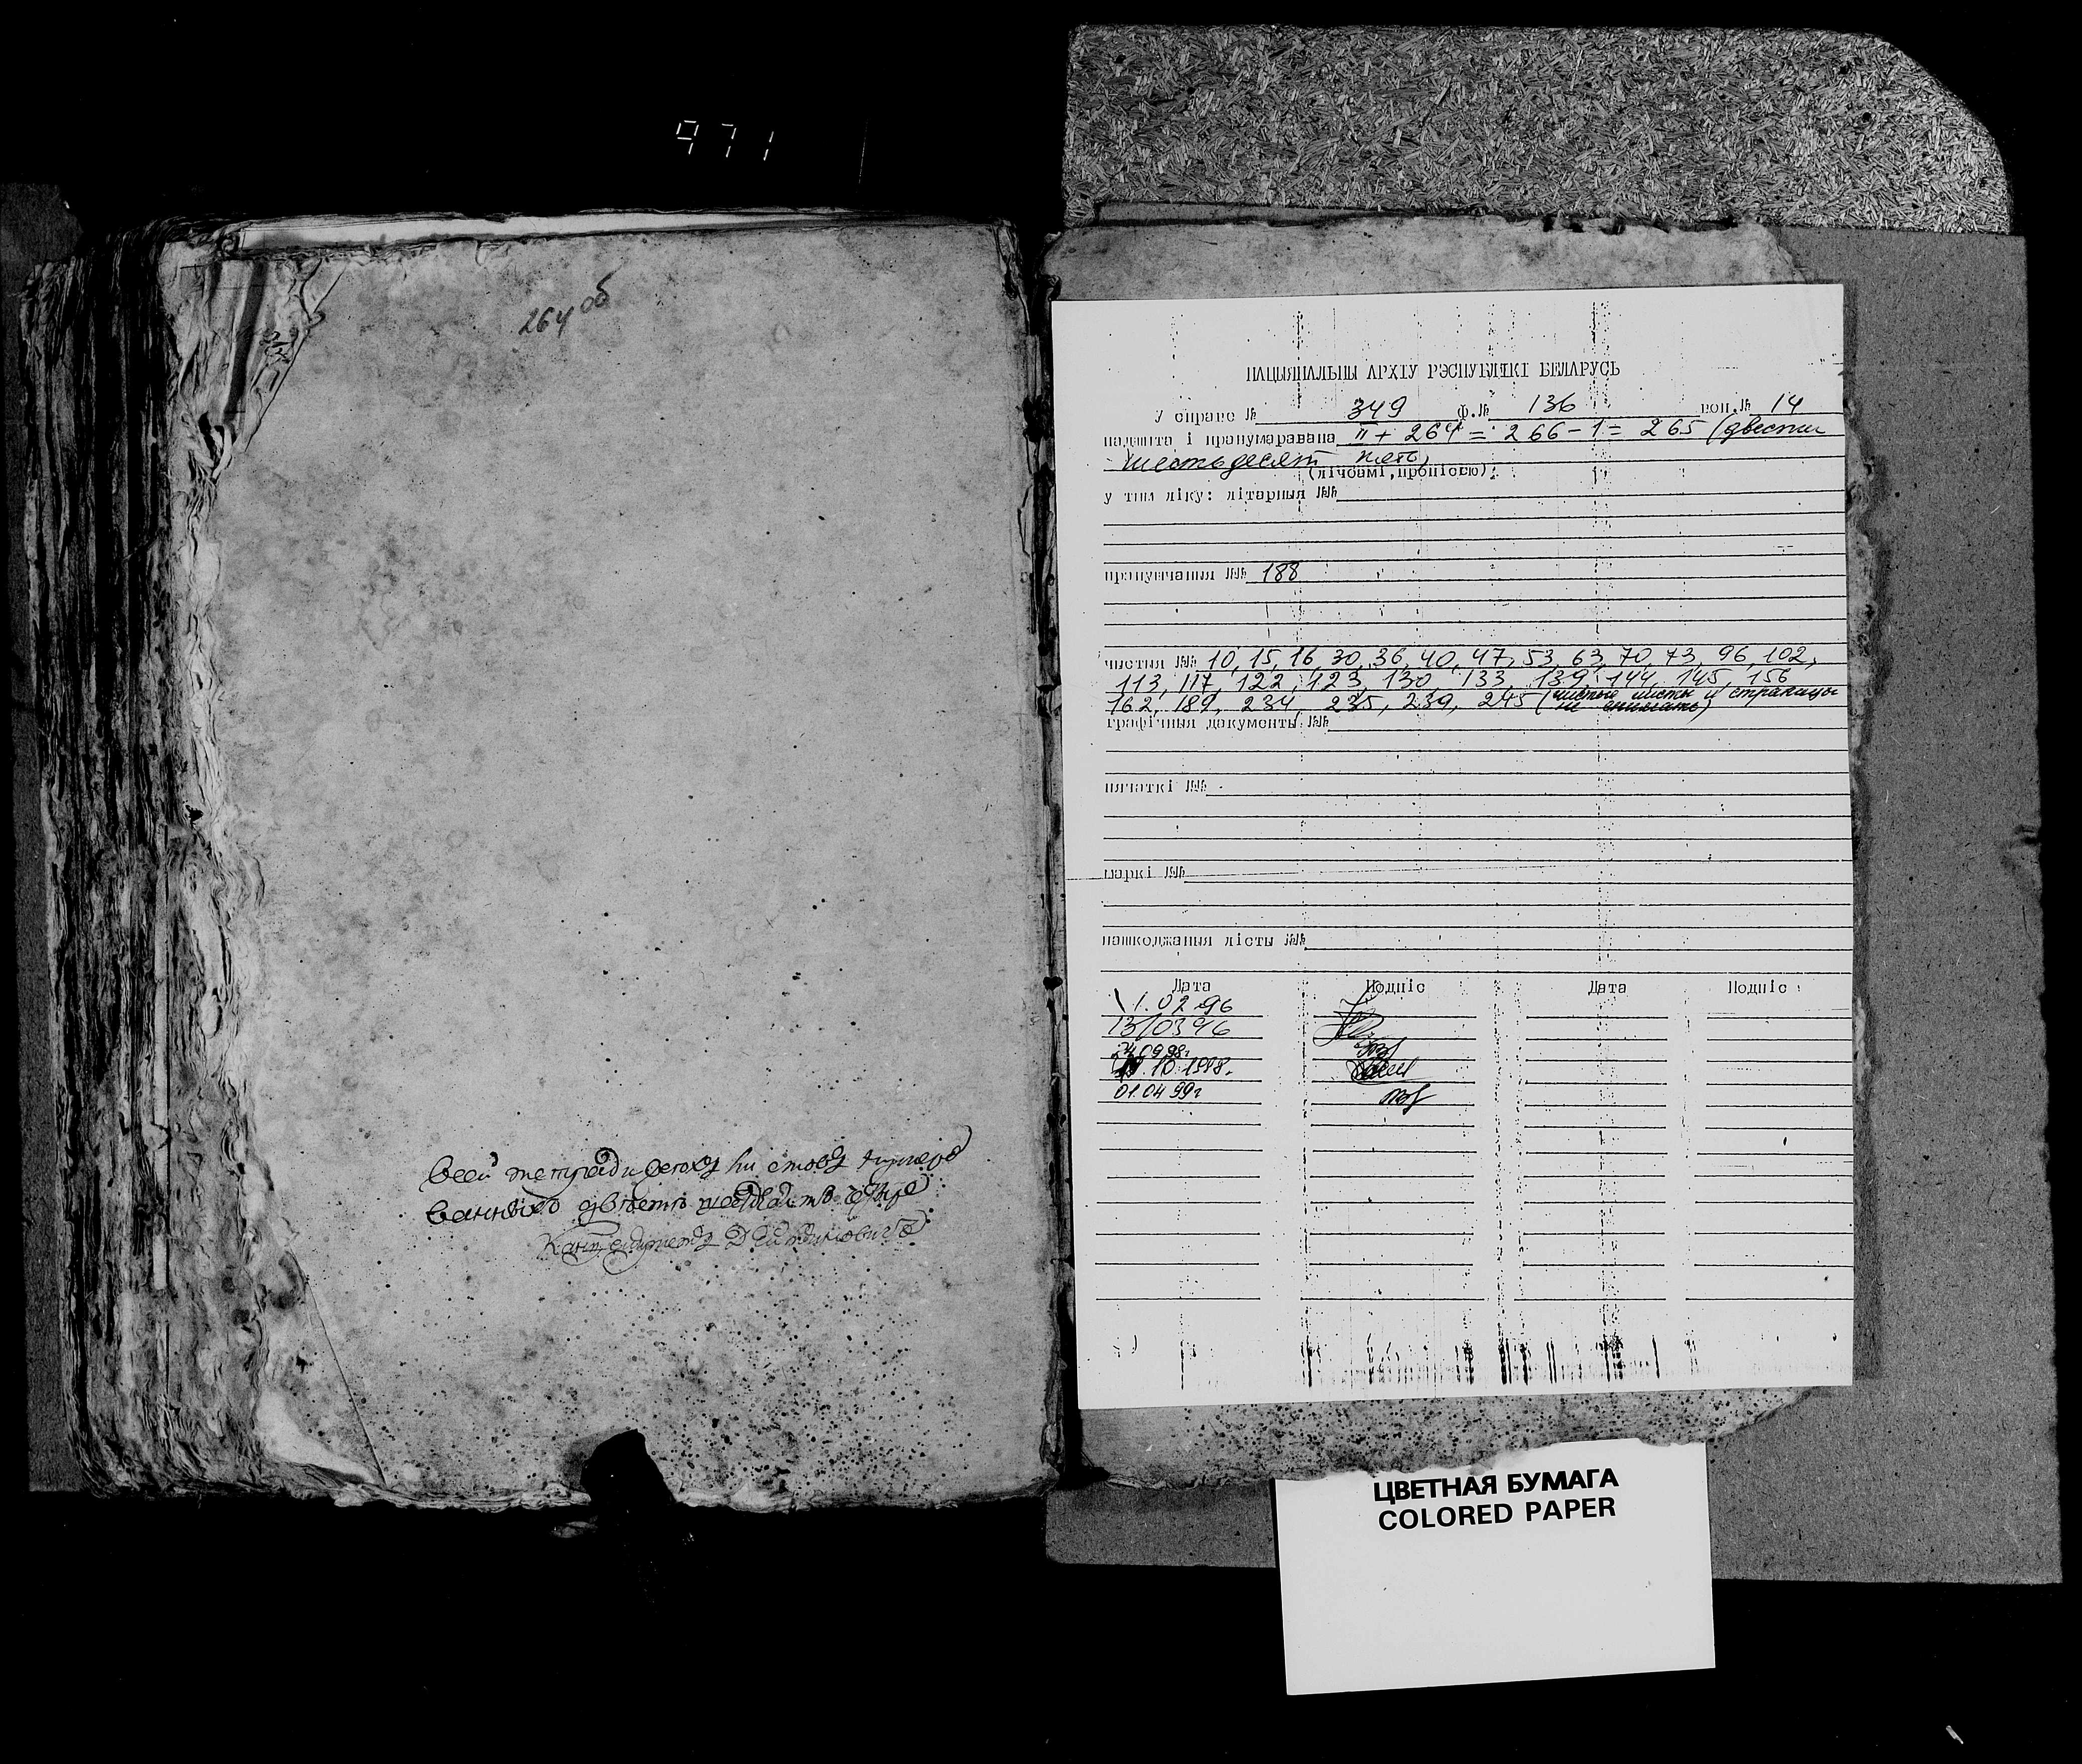 971
264 об
всей тетради
Канцеляристъ
НАЦЫЯНАЛЬНЫ АРХІУ РЭСПУБЛІКІ БЕЛАРУСЬ
У справе № 349 ф.№ 136 воп.№ 14
падшита і пранумаравана II + 264 = 266 - 1 = 265 (двести
шестьдесят пять)
(лічбамі, пропіссю)
у тым ліку: літарныя №№
прапушчаныя №№ 188
чыстыя №№ 10, 15, 16, 30, 36, 40, 47, 53, 63, 70, 73, 96, 102,
113, 117, 122, 123, 130, 133, 139, 144, 145, 156
162, 189, 234, 235, 239, 245 (чистые листы и страницы
не снимать)
графічныя дакументы №№
пячаткі №№
маркі №№
пашкоджаныя лісты №№
Дата Подпіс Дата Подпіс
1.02.96
13/03 96
24.09.98г
10.1998.
01.04 99г
ЦВЕТНАЯ БУМАГА
COLORED PAPER